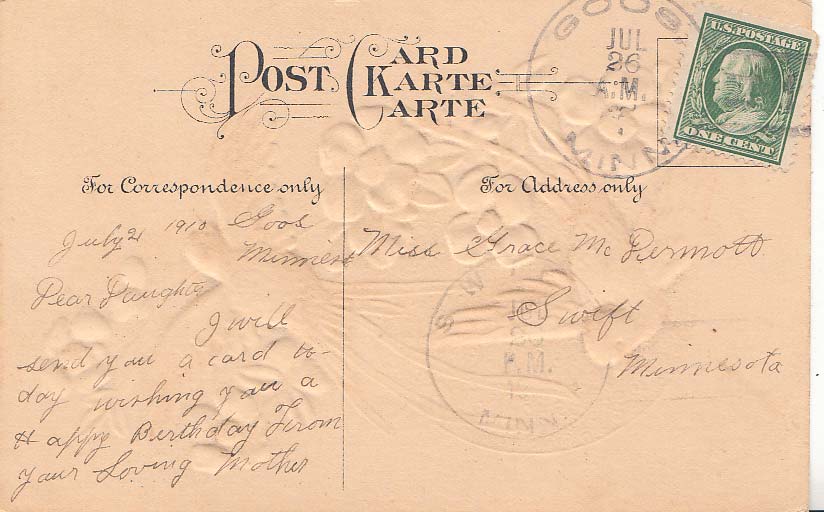 POST CARD
KARTE
CARTE
GOOS
JUL
26
A.M.
MINN
U.S. POSTAGE
ONE CENT
For Correspondence only
For Address only
July 21 1910 Goos
Minnesot
Dear Daughter
I will
send you a card to-
day wishing you a
Happy Birthday From
your Loving Mother
Miss Grace McDermott
Swift
Minnesota
SW
P.M.
MINN